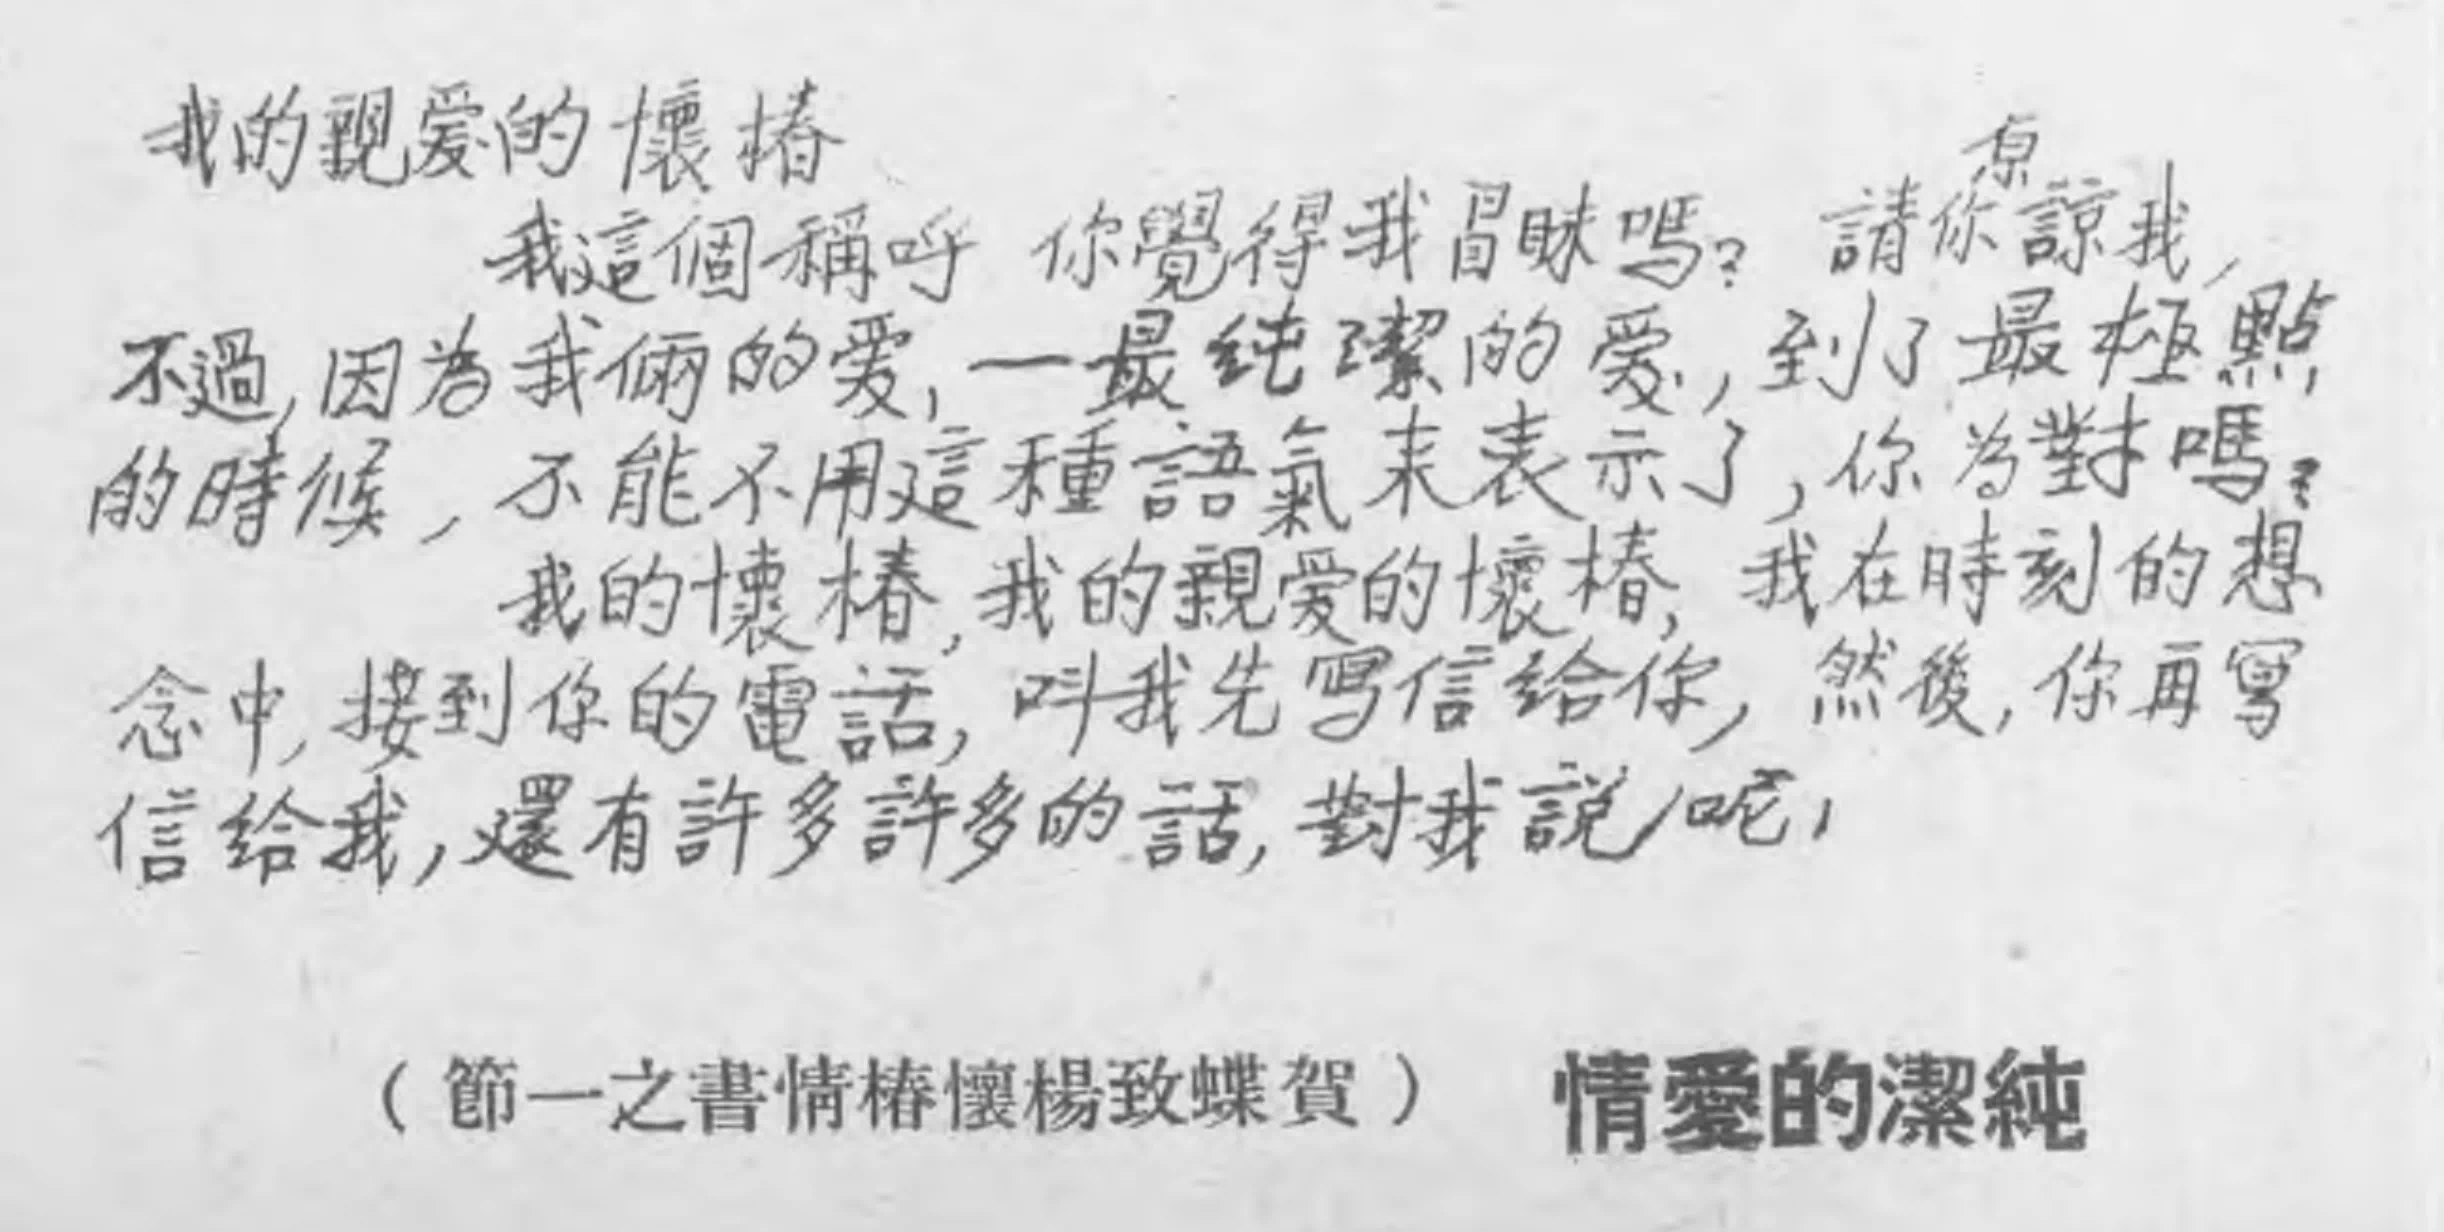 我的親爱的懷椿
原
我這個稱呼 你覺得我冒昧嗎? 請你諒我,
不過, 因為我倆的爱, 一最純潔的爱, 到了最極點
的時候, 不能不用這種語氣来表示了, 你為對嗎?
我的懷椿, 我的親爱的懷椿, 我在時刻的想
念中, 接到你的電話, 叫我先寫信給你, 然後, 你再寫
信給我, 還有許多許多的話, 對我說呢,
純潔的愛情 (賀蝶致楊懷椿情書之一節)